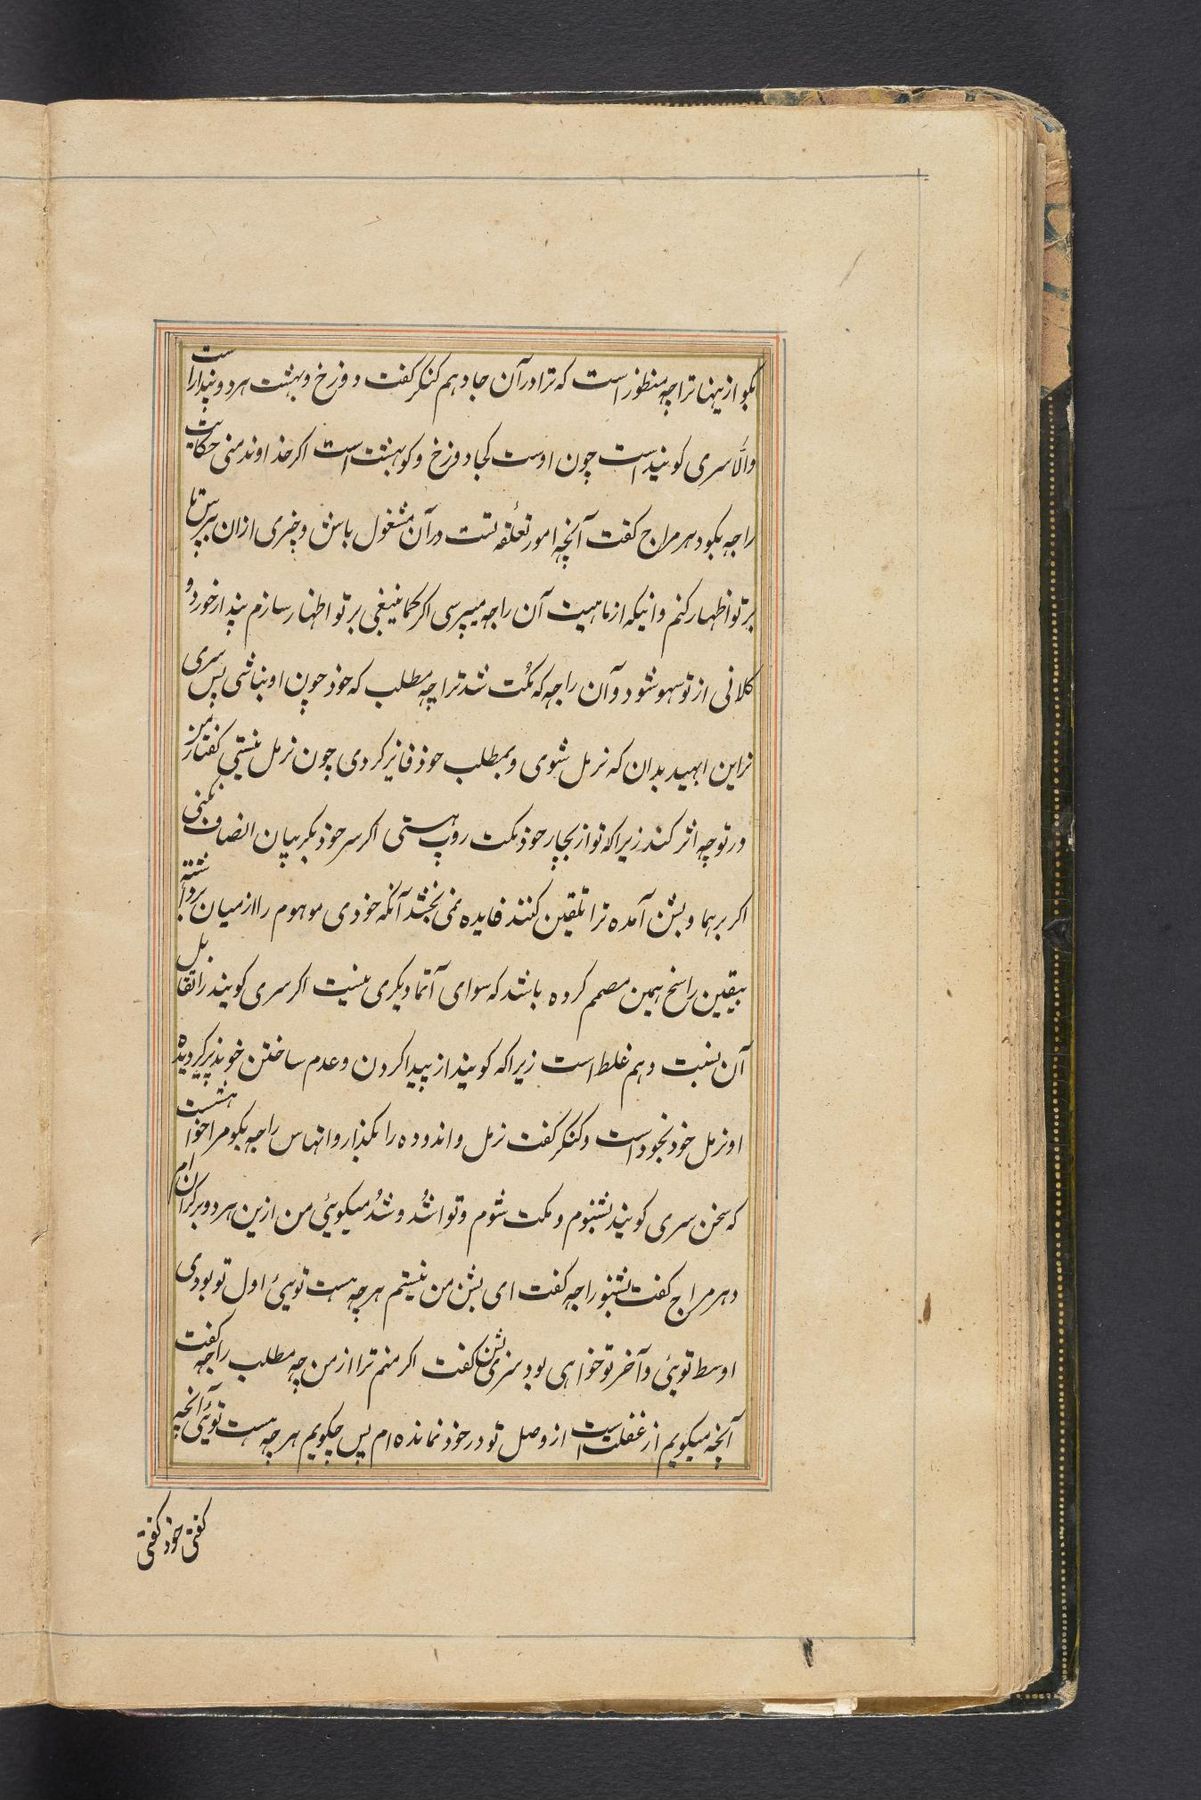 بکو ازینها ترا چه منظور است که ترا در آن جا دهم کنکر کفت دوزخ و بهشت هر دو پندار است
والّا سری کوبند است چون اوست کجا دوزخ و کو بهشت است اکر خداوند منی حکایت
راجه بکو دهرمراج کفت آنچه امور تعلقه تست در آن مشغول باش و چیزی ازان بپرس تا
بر تو اظهار کنم و اینکه از ماهیت آن راجه میپرسی اکر کما ینبغی بر تو اظهار سازم پندار خوردی و
کلانی از تو سهو شود و آن راجه که مکت شد ترا چه مطلب که خود چون او نباشی پس سری
نراین ابهید بدان که نرمل شوی و بمطلب خود فایز کردی چون نرمل نیستی کفتار من
در تو چه اثر کند زیرا که تو از بچار خود مکت روپ هستی اکر سر خود بکریبان انصاف نکنی
اکر برهما و بشن آمده ترا تلقین کنند فایده نمی بخشد آنکه خودی موهوم را از میان برداشته
بیقین راسخ همین مصمم کرده باشد که سوای آتما دیکری نیست اکر سری کوبند را تقابل
آن نسبت دهم غلط است زیرا که کوبند از پیدا کردن و عدم ساختن خود پذیر کردیده
او نرمل خود بخود است و کنکر کفت نرمل و اندوده را بکذار و اتهاس راجه بکو مرا خواهشست
که سخن سری کوبند بشنوم و مکت شوم و تو اشُد و شُد میکویئی من ازین هر دو بر کران ام
دهرمراج کفت بشنو راجه کفت ای بشن من نیستم هر چه هست توییٔ اول تو بودی
اوسط توییٔ و آخر تو خواهی بود سری بشن کفت اکر منم ترا از من چه مطلب راجه کفت
آنچه میکویم از غفلت است از وصل تو در خود نمانده ام پس چکویم هر چه هست توییٔ آنچه
کفتی خود کفتی